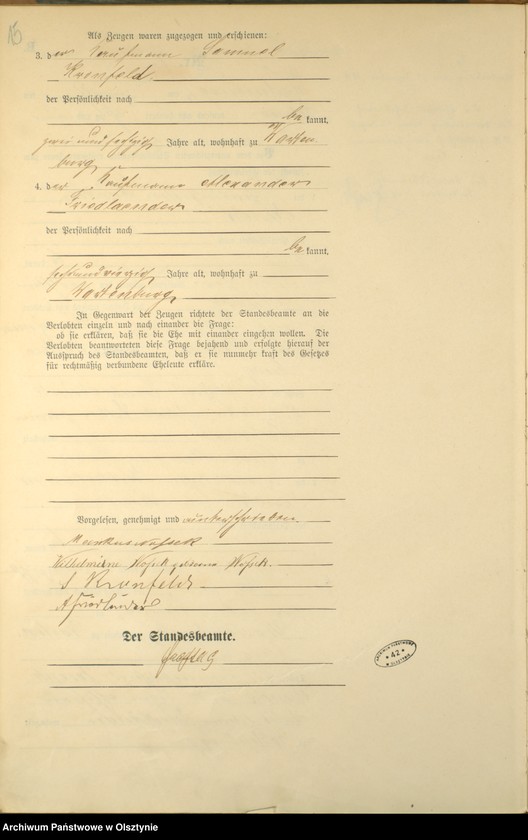 15
Als Zeugen waren zugezogen und erschienen:
3. der Kaufmann Samuel
Kronfeld
der Persönlichkeit nach
be kannt,
zwei und sechzig Jahre alt, wohnhaft zu Warten
burg
4. der Kaufmann Alexander
Friedlaender
der Persönlichkeit nach
be kannt,
sechsundvierzig Jahre alt, wohnhaft zu
Wartenburg
In Gegenwart der Zeugen richtete der Standesbeamte an die
Verlobten einzeln und nach einander die Frage:
ob sie erklären, daß sie die Ehe mit einander eingehen wollen. Die
Verlobten beantworteten diese Frage bejahend und erfolgte hierauf der
Ausspruch des Standesbeamten, daß er sie nunmehr kraft des Gesetzes
für rechtmäßig verbundene Eheleute erkläre.
Vorgelesen, genehmigt und unterschrieben
Markus
Wilhelmine geborene
S Kronfeld
A Friedländer
Der Standesbeamte.
Freytag
ARCHIWUM PAŃSTWOWE
* 42 *
W OLSZTYNIE
Archiwum Państwowe w Olsztynie